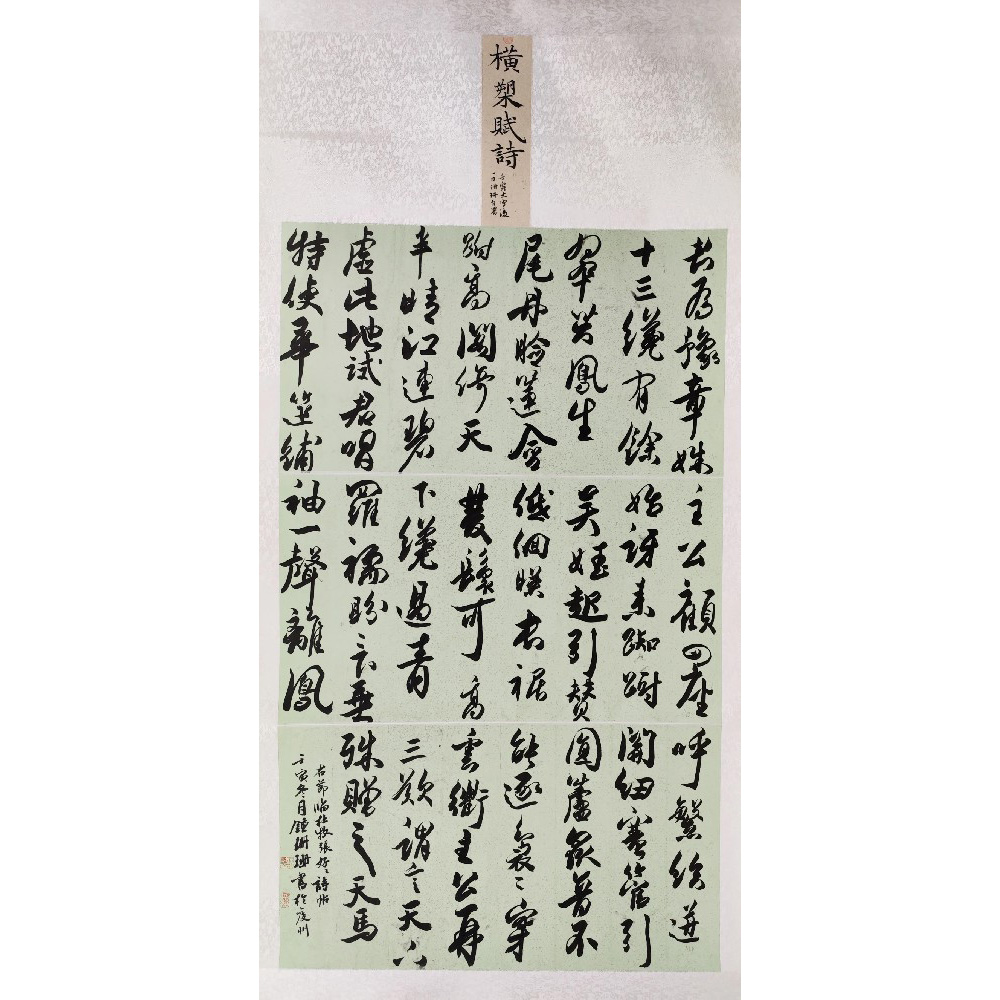 橫槊賦詩
君為豫章姝
十三纔有餘
翠茁鳳生
尾丹臉蓮含
跗高閣倚天
半晴江連碧
虛此地試君唱
特使華筵鋪
主公顧四座
始訝來踟躕
吳娃起引贊
低徊映長裾
雙鬟可高
下纔過青
羅襦盼〻下垂
袖一聲離鳳
呼繁弦迸
關紐塞管引
圓蘆眾音不
能逐裊〻穿
雲衢主公再
三歎謂言天下
殊贈之天馬
右節臨杜牧張好〻詩帖
壬寅冬月鍾珊珊書於